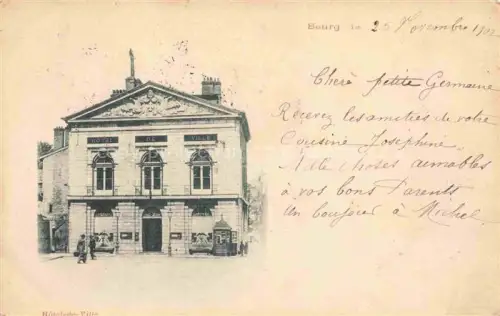 Bourg le 25 Novembre 1902
Chère petite Germaine
Recevez les amitiés de votre
Cousine Joséphine.
Mille choses aimables
à vos bons Parents
Un bonjour à Michel
HOTEL DE VILLE
Hôtel-de-Ville